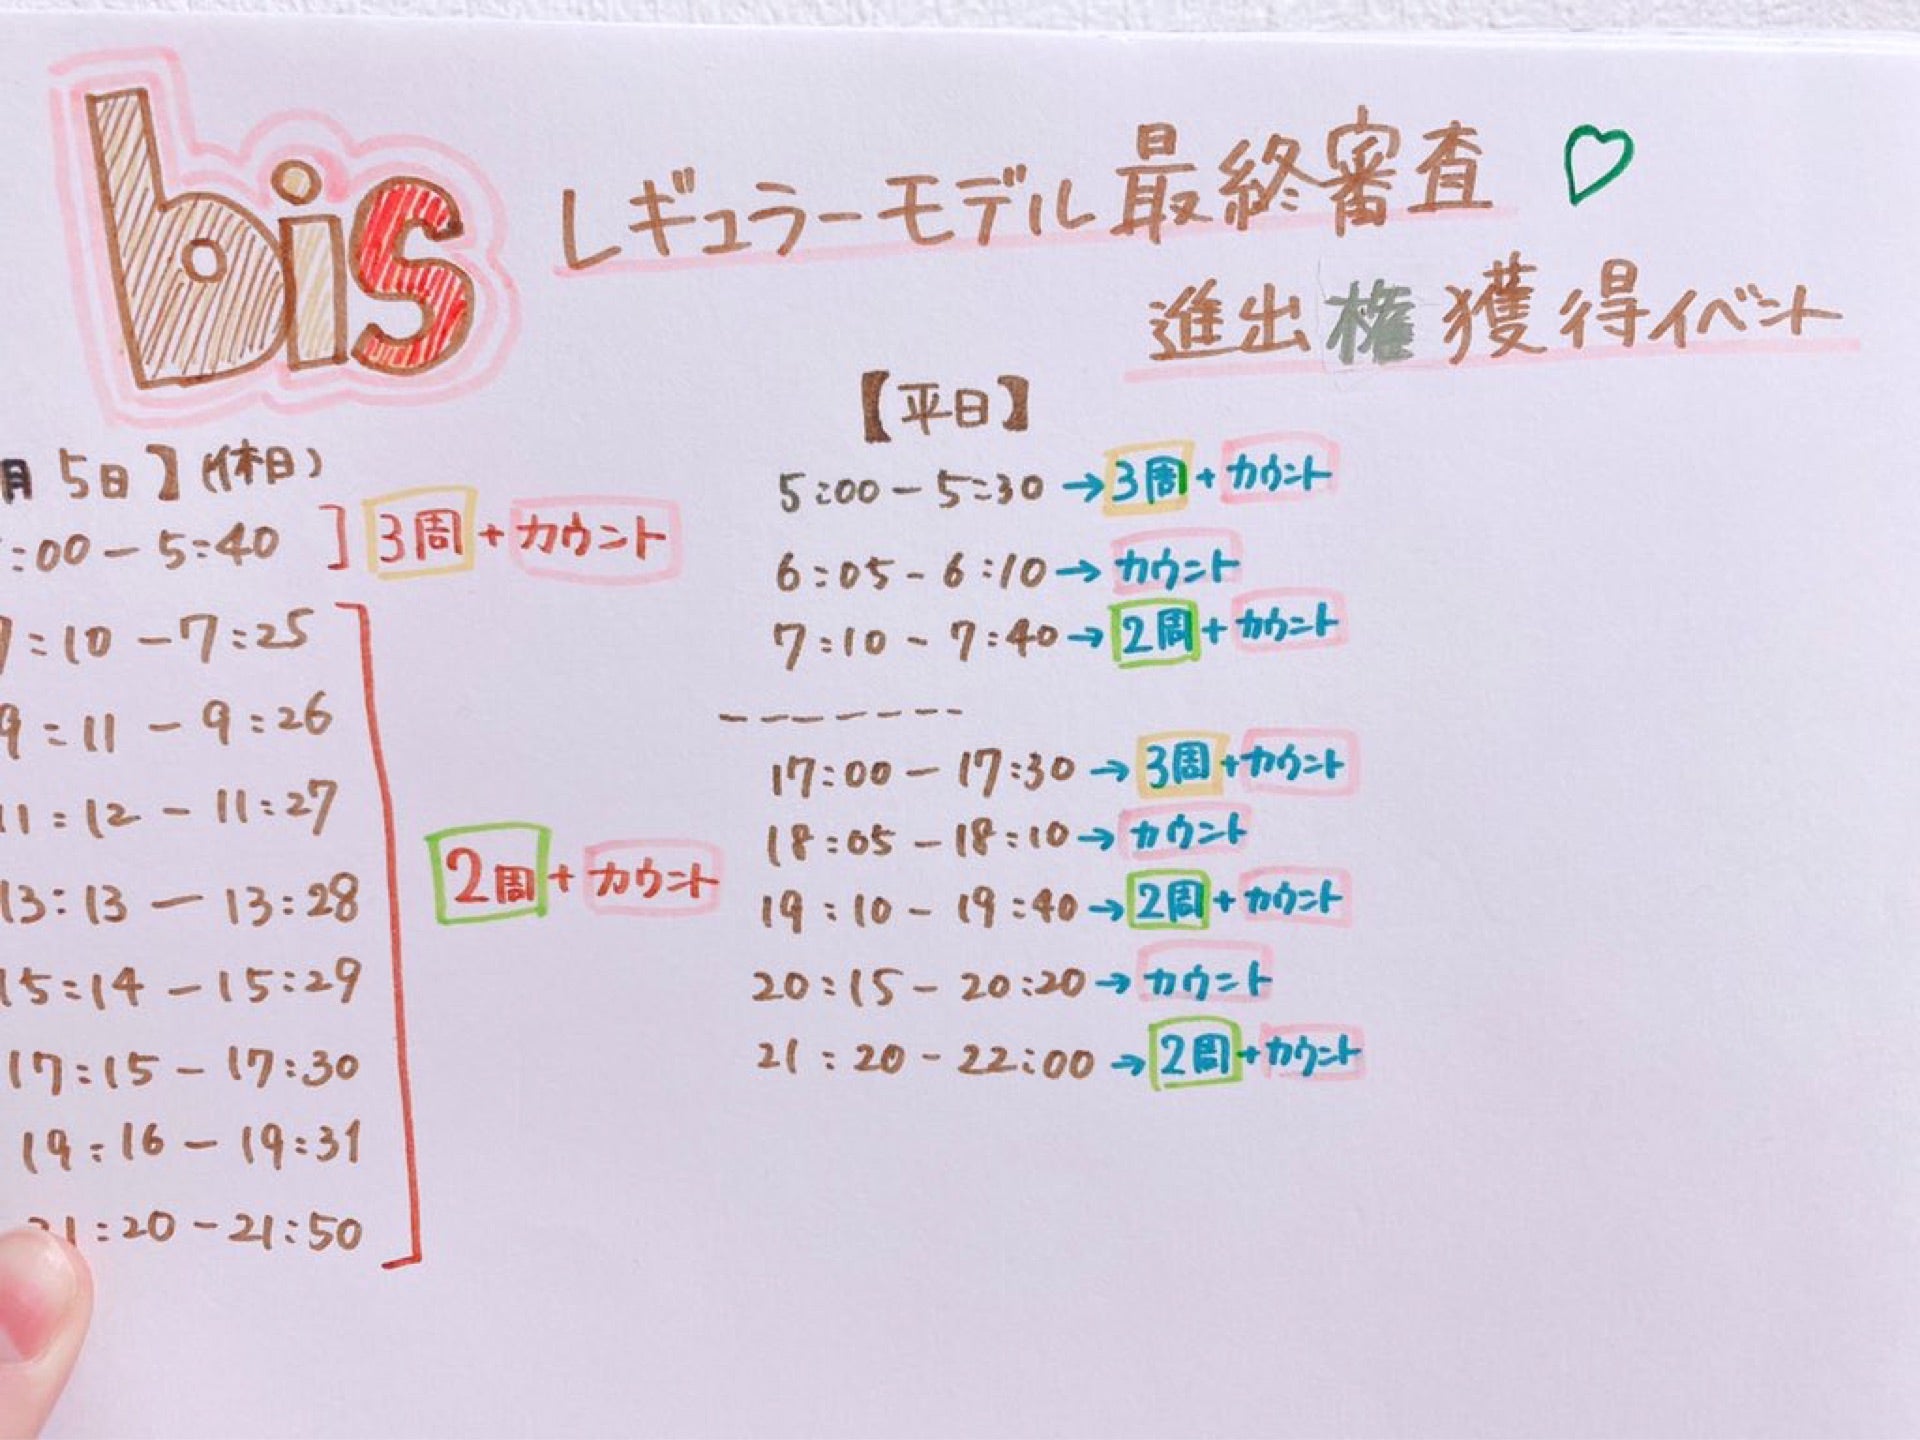 bis
レギュラーモデル最終審査
進出権獲得イベント
月5日】(休日)
:00-5:40 ] 3周+カウント
7:10-7:25
9:11-9:26
11:12-11:27
13:13-13:28
15:14-15:29
17:15-17:30
19:16-19:31
21:20-21:50
2周+カウント
【平日】
5:00-5:30→3周+カウント
6:05-6:10→カウント
7:10-7:40→2周+カウント
-------
17:00-17:30→3周+カウント
18:05-18:10→カウント
19:10-19:40→2周+カウント
20:15-20:20→カウント
21:20-22:00→2周+カウント